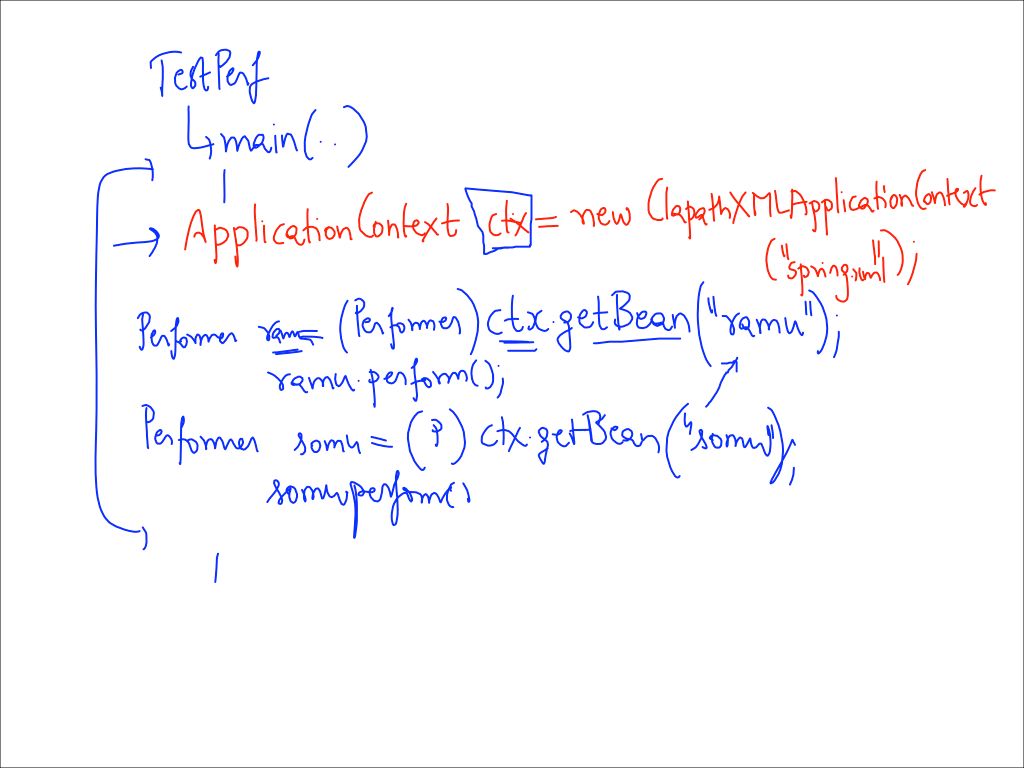 TestPerf
main(..)
ApplicationContext ctx = new ClapathXMLApplicationContext
("spring.xml");
Performer ramu = (Performer) ctx.getBean("ramu");
ramu.perform();
Performer somu = (P) ctx.getBean("somu");
somu.perform()